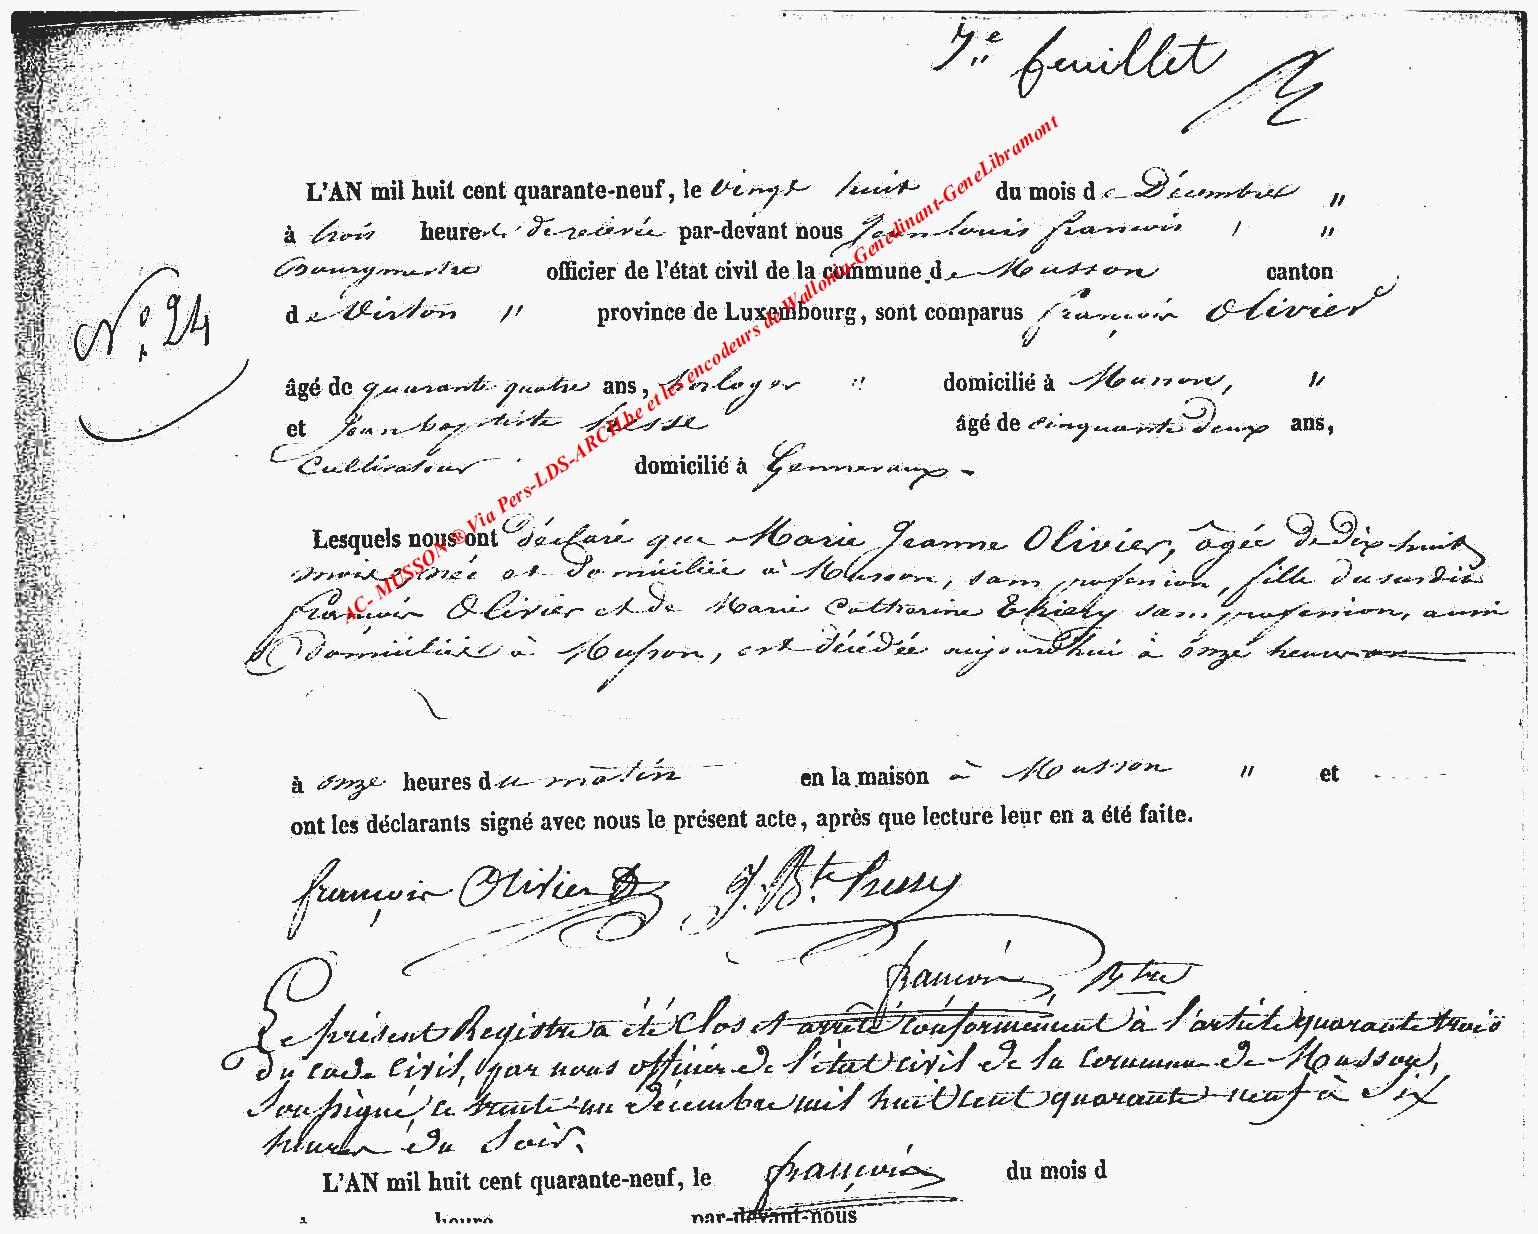 7e feuillet
L'AN mil huit cent quarante-neuf, le vingt huit du mois de Décembre "
à trois heures de relevée par-devant nous Jean Louis françois "
Bourgmestre officier de l'état civil de la commune de Musson canton
de Virton " province de Luxembourg, sont comparus françois Olivier
No. 24
âgé de quarante quatre ans, horloger " domicilié à Musson, "
et Jean baptiste âgé de cinquante deux ans,
Cultivateur domicilié à Gennevaux -
Lesquels nous ont déclaré que Marie Jeanne Olivier, âgée de dix huit
mois née et domiciliée à Musson, sans profession, fille du susdit
françois Olivier et de Marie Catherine Thiery sans profession, aussi
domiciliée à Musson, est décédée aujourd'hui à onze heures
à onze heures du matin en la maison à Musson " et
ont les déclarants signé avec nous le présent acte, après que lecture leur en a été faite.
françois Olivier J. Bte.
françois Bgtre
Le présent Registre a été Clos et arrêté conformément à l'article quarante trois
du code Civil, par nous officier de l'état civil de la Commune de Musson,
Soussigné, ce trente un décembre mil huit cent quarante neuf à Six
heures du Soir.
françois
L'AN mil huit cent quarante-neuf, le du mois d
à heure par-devant-nous
AC- MUSSON ® Via Pers-LDS-ARCH.be et les encodeurs de Wallonia-Genedinant-GeneLibramont